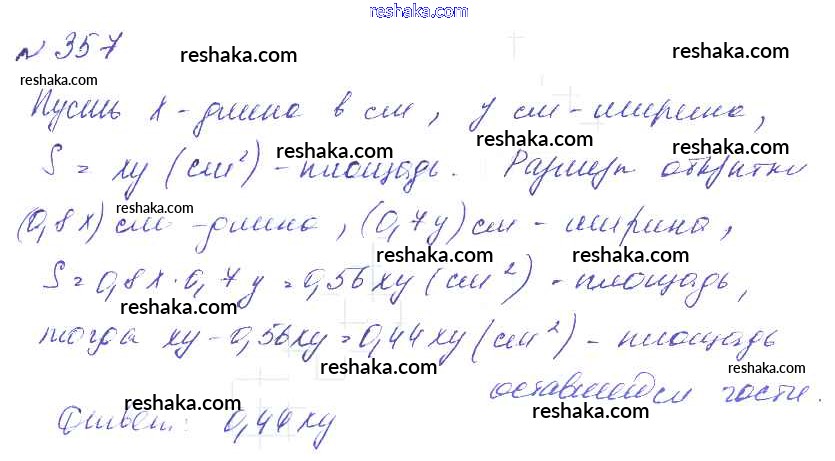 www.reshaka.com
№ 357 reshaka.com reshaka.com
reshaka.com reshaka.com
Пусть x - длина в см, y см - ширина,
reshaka.com reshaka.com
S = xy (см²) - площадь. Размеры открытки
reshaka.com
(0,8x) см - длина, (0,7y) см - ширина,
reshaka.com reshaka.com
S = 0,8x · 0,7y = 0,56xy (см²) - площадь,
reshaka.com reshaka.com
тогда xy - 0,56xy = 0,44xy (см²) - площадь
reshaka.com
оставшейся части.
reshaka.com reshaka.com
Ответ: 0,44xy
reshaka.com reshaka.com